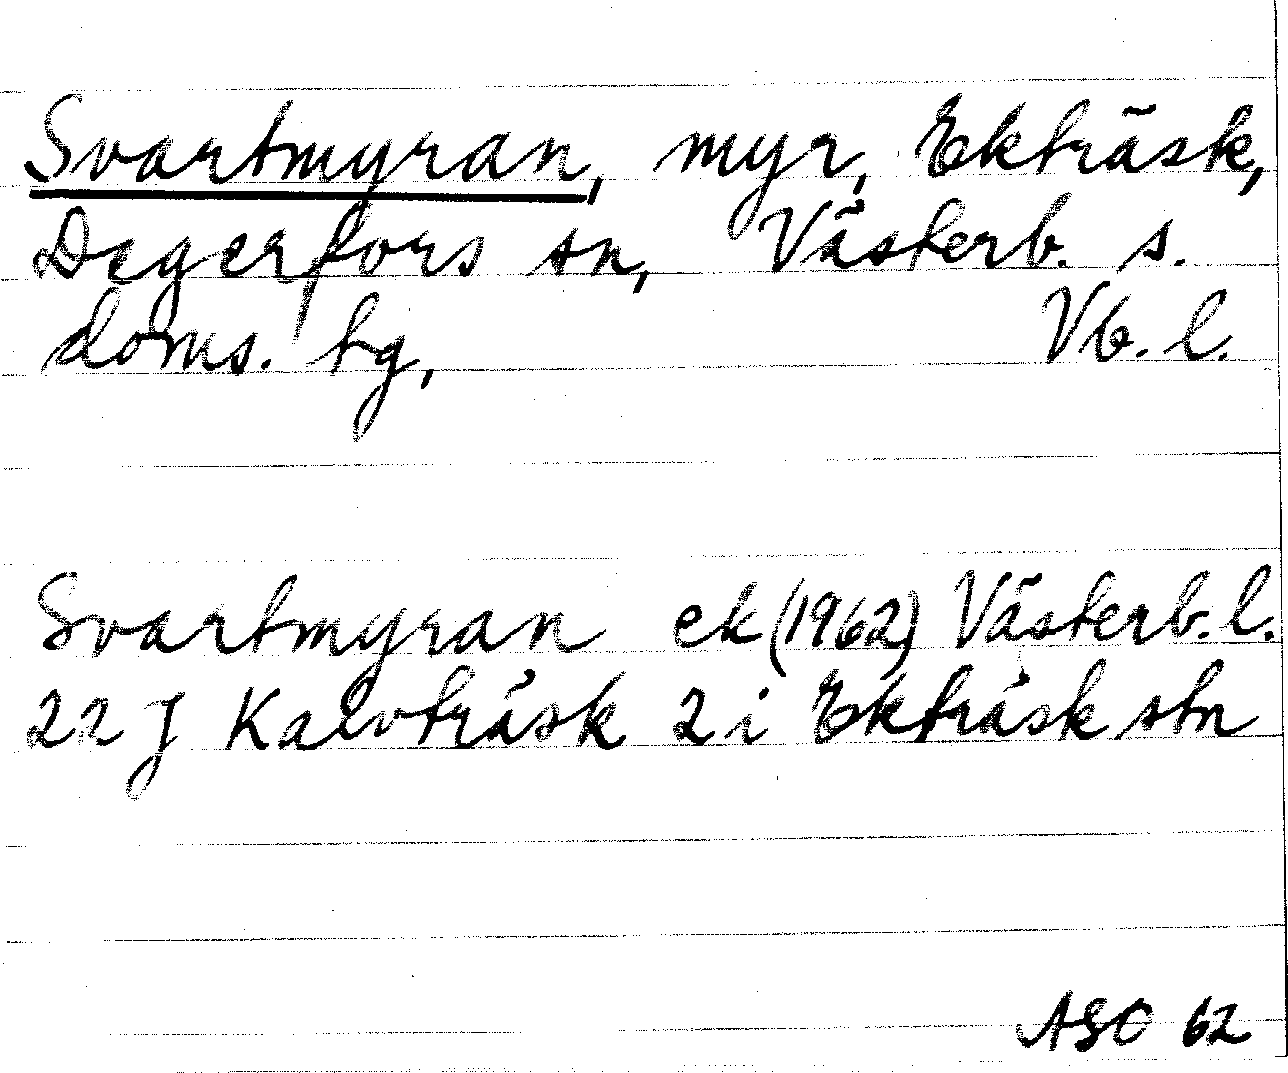 Svartmyran, myr, Ekträsk,
Degerfors sn, Västerb. s.
doms. tg, Vb. l.
Svartmyran ek (1962) Västerb. l.
22 J Kalvträsk 2 i Ekträsk stn
ASC 62